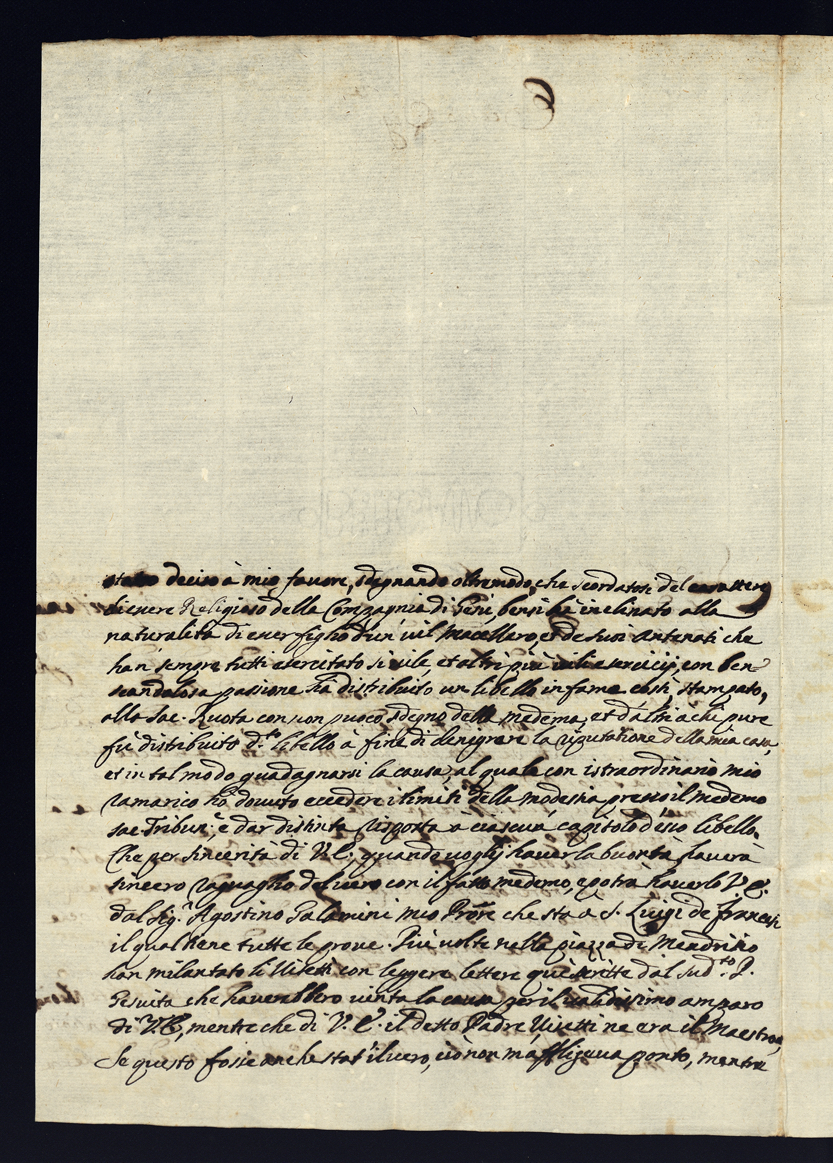 stato deciso à mio favore, sdegnando oltremodo, che scordatosi del carattere
di vero Religioso della Compagnia di Giesù, bensì hà inclinato alla
naturalità di esser figlio d'un vil Macellaro, et de suoi antenati che
han' sempre tutti esercitato sì vile, et altri più vili esercicij, con ben
scandalosa passione hà distribuito un libello infame costì stampato,
alla Sac. Ruota con non puoco sdegno della medema, et d'altri à chi pure
fù distribuito d.to libello à fine di denigrare la riputatione della mia casa,
et in tal modo guadagnarsi la causa, al quale con istraordinario mio
ramarico hò dovuto eccedere i limiti della modestia presso il medemo
Sac. Tribun.e e dar distinta risposta à ciascun' capitolo d'esso libello.
Che per sincerità di V.E. quando voglij haver la buontà, haverà
sincero raguaglio del vero con il fatto medemo, e potrà haverlo V.E.
dal Sig.r Agostino Palamini mio Pròre che stà à S. Luigi de francesi
il qual tiene tutte le prove. Più volte nella piazza di Mendrisio
han milantato li Visetti con leggere lettere quì scritte dal sud.to P.
Gesuita che haverebbero vinta la causa per il validissimo amparo
di V.E., mentre che di V.E. il detto Padre Visetti ne era il Maestro,
Se questo fosse anche stat' il vero, ciò non m'affligeva ponto, mentre